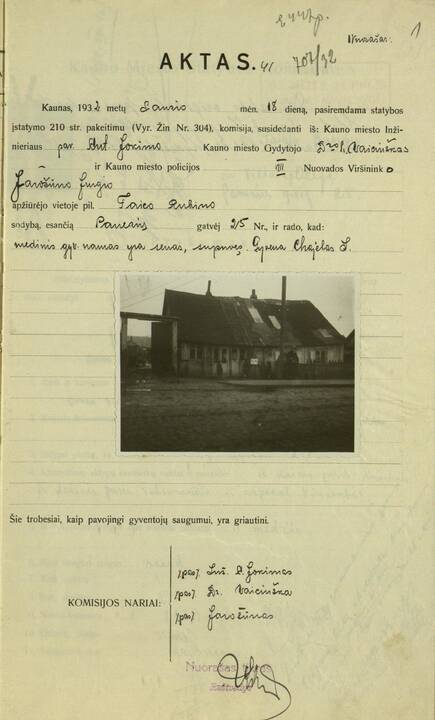 Nuorašas.
1
AKTAS. 41 707/32
Kaunas, 1932 metų Sausio mėn. 18 dieną, pasiremdama statybos
įstatymo 210 str. pakeitimu (Vyr. Žin Nr. 304), komisija, susidedanti iš: Kauno miesto Inži-
nieriaus pav. Ant. Jokimo Kauno miesto Gydytojo D-ro Vaičiuškas
ir Kauno miesto policijos III Nuovados Viršininko
Jarošiūno Jurgio
apžiūrėjo vietoje pil. Taico Rubino
sodybą, esančią Panerių gatvėj 215 Nr., ir rado, kad:
medinis gyv. namas yra senas, supuvęs. Gyvena Chajelas S.
Šie trobesiai, kaip pavojingi gyventojų saugumui, yra griautini.
KOMISIJOS NARIAI:
/pas/. Inž. A. Jokimas
/pas/ Dr. Vaičiuška
/pas/ Jarošiūnas
Nuorašas tikras